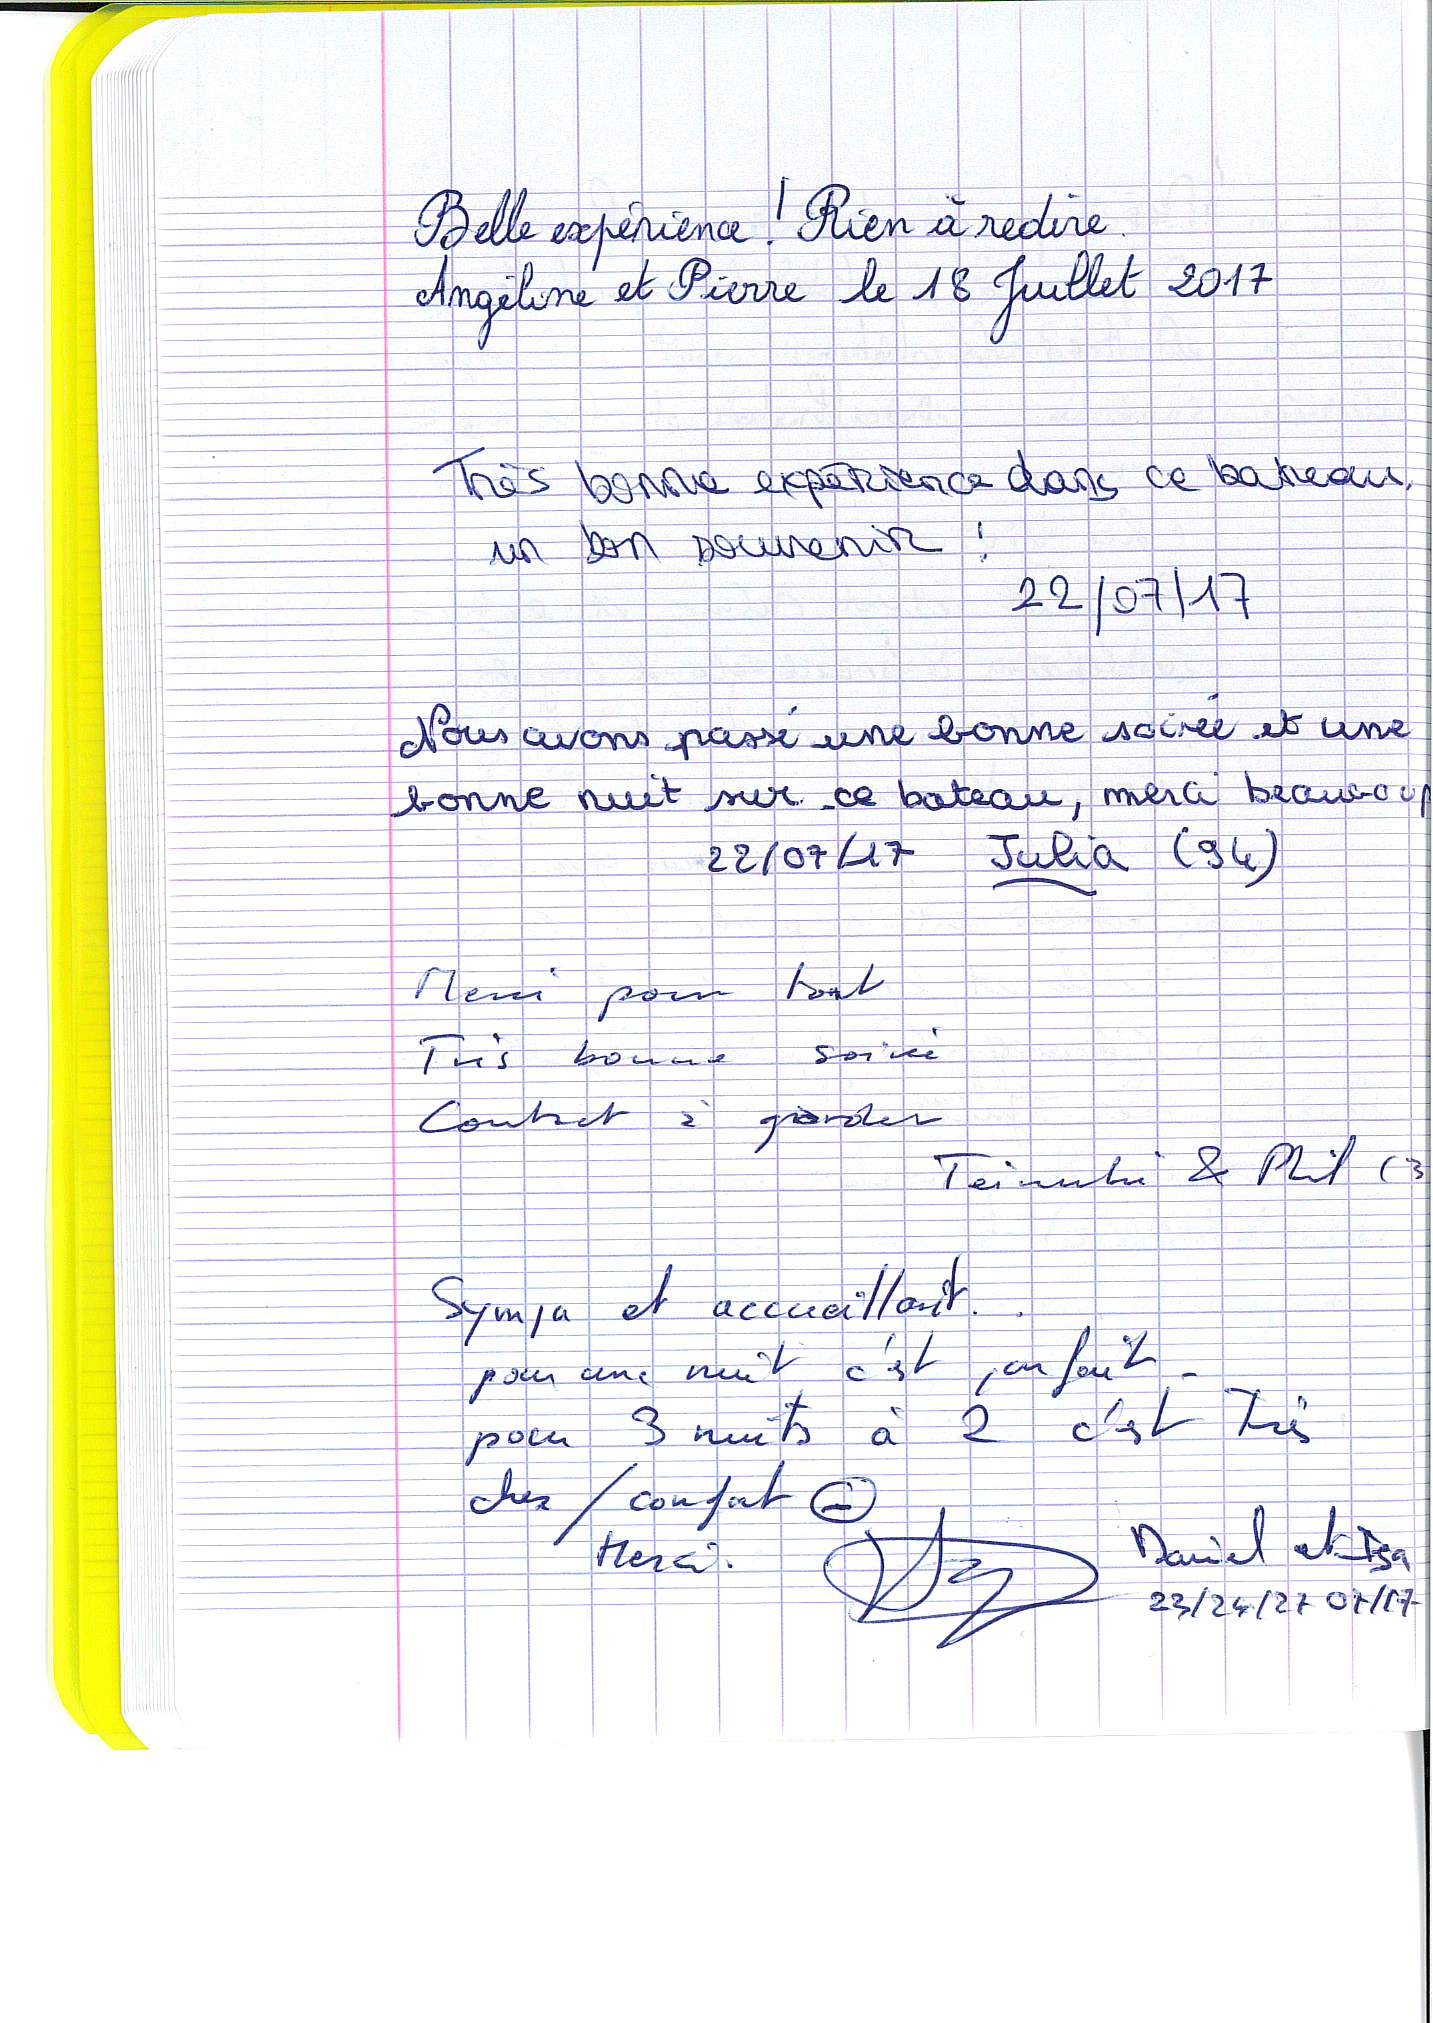 Belle expérience ! Rien à redire.
Angéline et Pierre le 18 Juillet 2017
Très bonne expérience dans ce bateau,
un bon souvenir !
22/07/17
Nous avons passé une bonne soirée et une
bonne nuit sur ce bateau, merci beaucoup
22/07/17 Julia (94)
Merci pour tout
Très bonne soirée
Contact à garder
& Phil (3
Sympa et accueillant..
pour une nuit c'est parfait -
pour 3 nuits à 2 c'est très
cher / confort
Merci.
Daniel et Isa
23/24/27 07/17